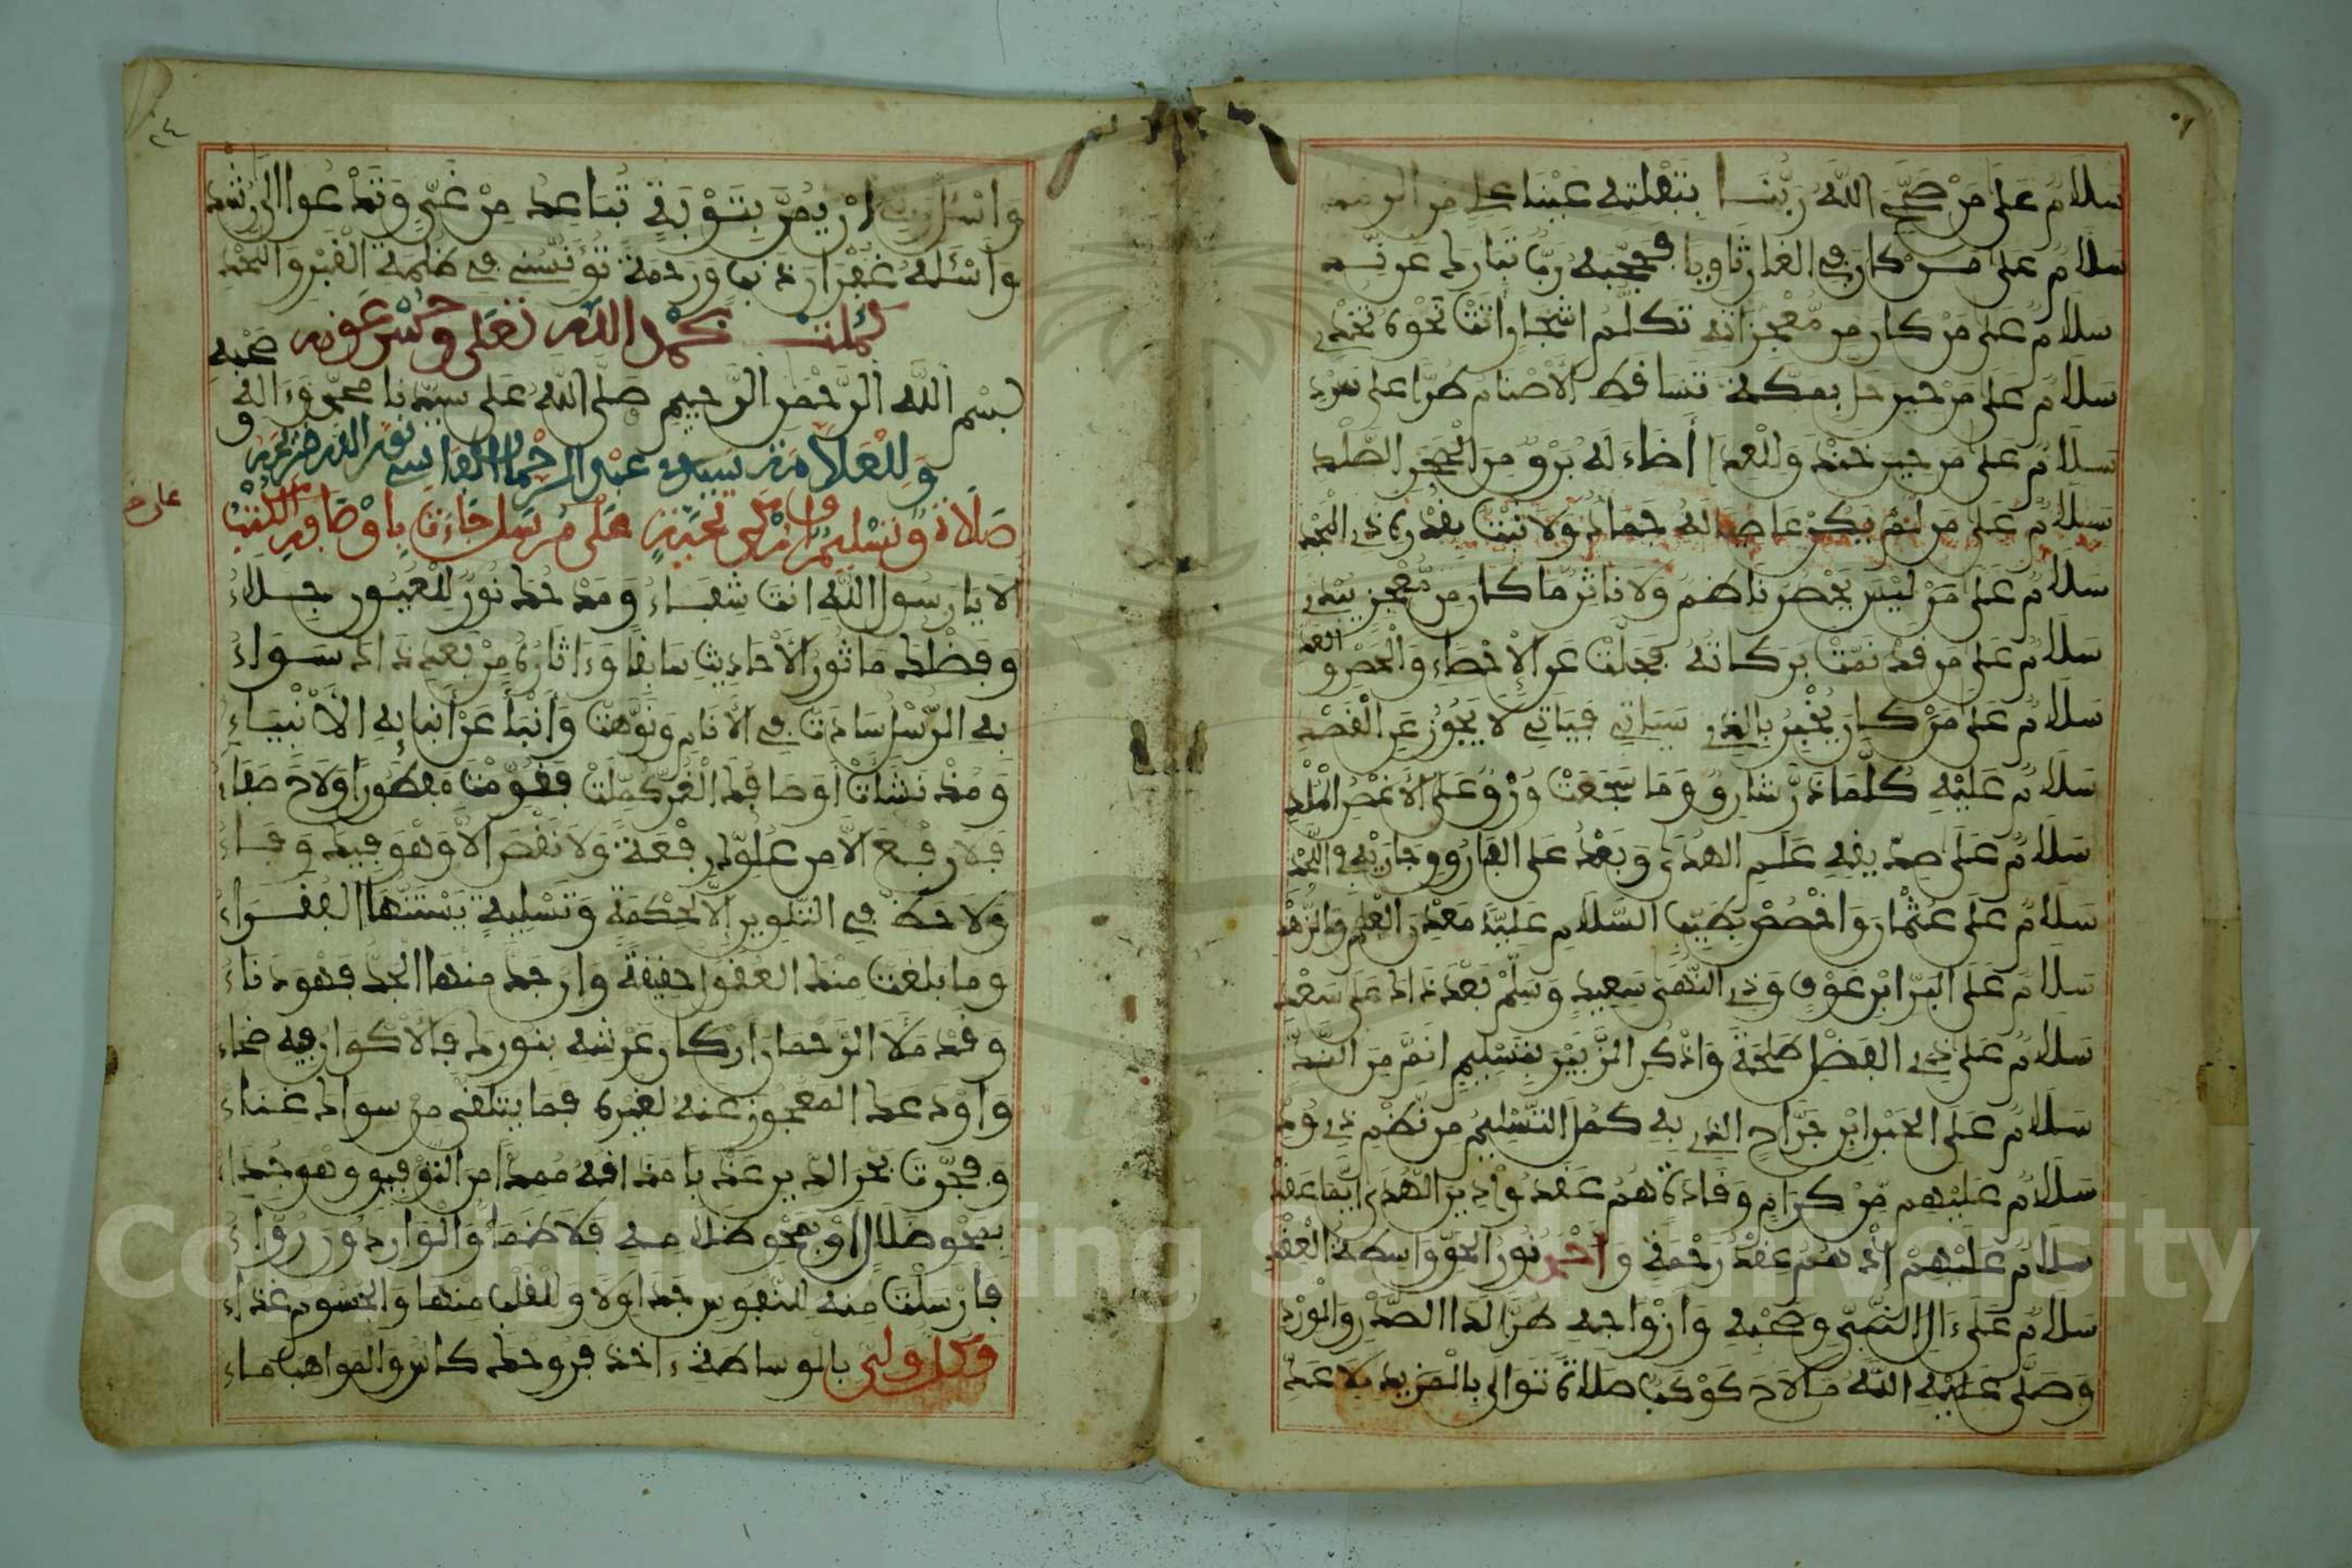 سلام على من صحح الله ربنا بتفلته عينا علي من الرمد
سلام على من كان في الغار ثاويا فحجبه رب تبارك عن ند
سلام على من كان من معجزاته تكلم اشجار اتت نحوه تخدي
سلام على من حين حل بمكة تساقط الاصنام طرا على نجد
سلام على من حين خندق للعدا أضاء له برق من الحجر الصلد
سلام على من لم يكن عاصيا له جماد ولا نبت بقدرة ذي المجد
سلام على من ليس يحصر ناظم ولا ناثر ما كان من معجز يبدي
سلام على من قد نمت بركاته فجلت عن الإحصاء والحصر والعد
سلام على من كان يخبر بالذي سياتي فياتي لا يجوز عن القصد
سلام عليه كلما ذر شارق وما سجعت ورق على الأغصن الملد
سلام على صديقه علم الهدى وبعد على الفاروق جاريه في اللحد
سلام على عثمان واخصص بطيب السلام عليا معدن العلم والزهد
سلام على البر ابن عوف وذي النهى سعيد وسلم بعد ذاك على سعد
سلام على ذي الفضل طلحة واذكر الزبير بتسليم انم من الند
سلام على الحبر ابن جراح الذي به كمل التسليم من نظم ذي ود
سلام عليهم من كرام وقادة هم عقدوا دين الهدى أيما عقد
سلام عليهم إذ هم عقد رحمة وأحمد نور الحق واسطة العقد
سلام على ءال النبي وصحبه وازواجه طرا لدا الصدر والورد
وصلى عليه الله ما لاح كوكب صلاة توالى بالمزيد بلا عد
٢٤
وأسأل ربي ان يمن بتوبة تباعد من غي وتدعوا الى رشد
وأسأله غفران ذنب ورحمة تؤنسني في ظلمة القبر واللحد
كملت بحمد الله تعلى وحسن عونه
بسم الله الرحمن الرحيم صلى الله على سيدنا محمد وءاله وصحبه
وللعلامة سيدي عبد الرحمان الفاسي نور الله ضريحه
صلاة وتسليم وازكى تحية على مرسل جاءت باوصافه الكتب
الا يا رسول الله انت شفاء ومدحك نور للعيون جلاء
وفضلك ماثور الأحاديث سابقا وءاثاره من بعد ذاك سواء
به الرسل سادت في الأنام ونوهت وانبأ عن أنبائه الأنبياء
ومذ نشات أوصافك الغر كملت فقومت مفطورا ولاح صفاء
فلا رفع الا من علوك رفعة ولا نقص الا وهو فيك وفاء
ولا حظ في التلوين إلا لحكمة وتسلية يستنها الفقراء
وما بلغت منك العقول حقيقة وان جد منها الجد فهو دناء
وقد ملأ الرحمان اركان عرشه بنورك فالأكوان فيه ضياء
واودعك المعجوز عنه لغيره فما يتلقى من سواك غناء
وفجرت بحر الدين عذبا مذاقه ممدا من التوفيق وهو جداء
بمحو ضلال او بمحو ظلامه فلا ظمأ والوارد ون رواء
فأرسلت منه للنفوس جداولا وللقلب منها والجسوم غذاء
وكل ولي بالوساطة ءاخذ فروحك كاس والمواهب ماء